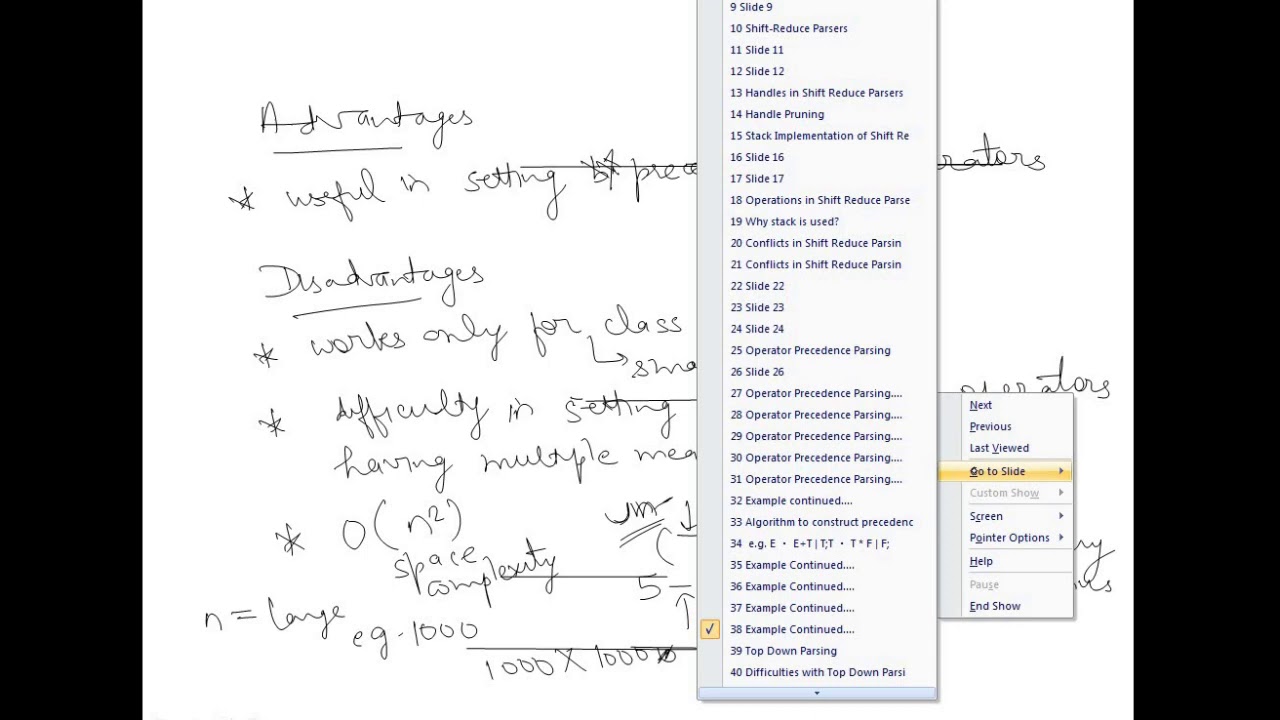 Advantages
* useful in setting prece
erators
Disadvantages
* works only for class
sma
* difficulty in setting
operators
having multiple mea
* O(n²)
space
complexity
5
n = large
eg. 1000
1000 X 1000
9 Slide 9
10 Shift-Reduce Parsers
11 Slide 11
12 Slide 12
13 Handles in Shift Reduce Parsers
14 Handle Pruning
15 Stack Implementation of Shift Re
16 Slide 16
17 Slide 17
18 Operations in Shift Reduce Parse
19 Why stack is used?
20 Conflicts in Shift Reduce Parsin
21 Conflicts in Shift Reduce Parsin
22 Slide 22
23 Slide 23
24 Slide 24
25 Operator Precedence Parsing
26 Slide 26
27 Operator Precedence Parsing....
28 Operator Precedence Parsing....
29 Operator Precedence Parsing....
30 Operator Precedence Parsing....
31 Operator Precedence Parsing....
32 Example continued....
33 Algorithm to construct precedenc
34 e.g. E · E+T|T;T · T*F|F;
35 Example Continued....
36 Example Continued....
37 Example Continued....
38 Example Continued....
39 Top Down Parsing
40 Difficulties with Top Down Parsi
Next
Previous
Last Viewed
Go to Slide
Custom Show
Screen
Pointer Options
Help
Pause
End Show